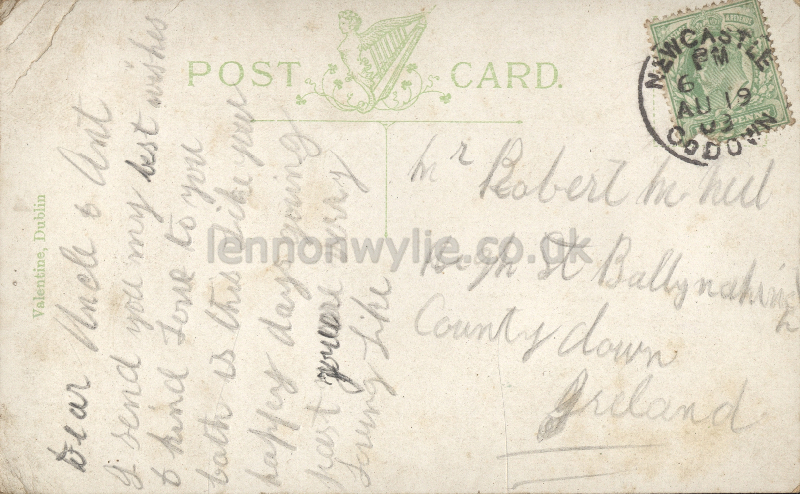 POST CARD.
NEWCASTLE
PM
6
AU 19
03
Co DOWN
Valentine, Dublin
Dear Uncle & Ant
I send you my best wishes
& kind love to you
both is this like your
happy days going
past you are very
Loung Like
Mr Robert
High St Ballynahinch
County down
Ireland
lennonwylie.co.uk